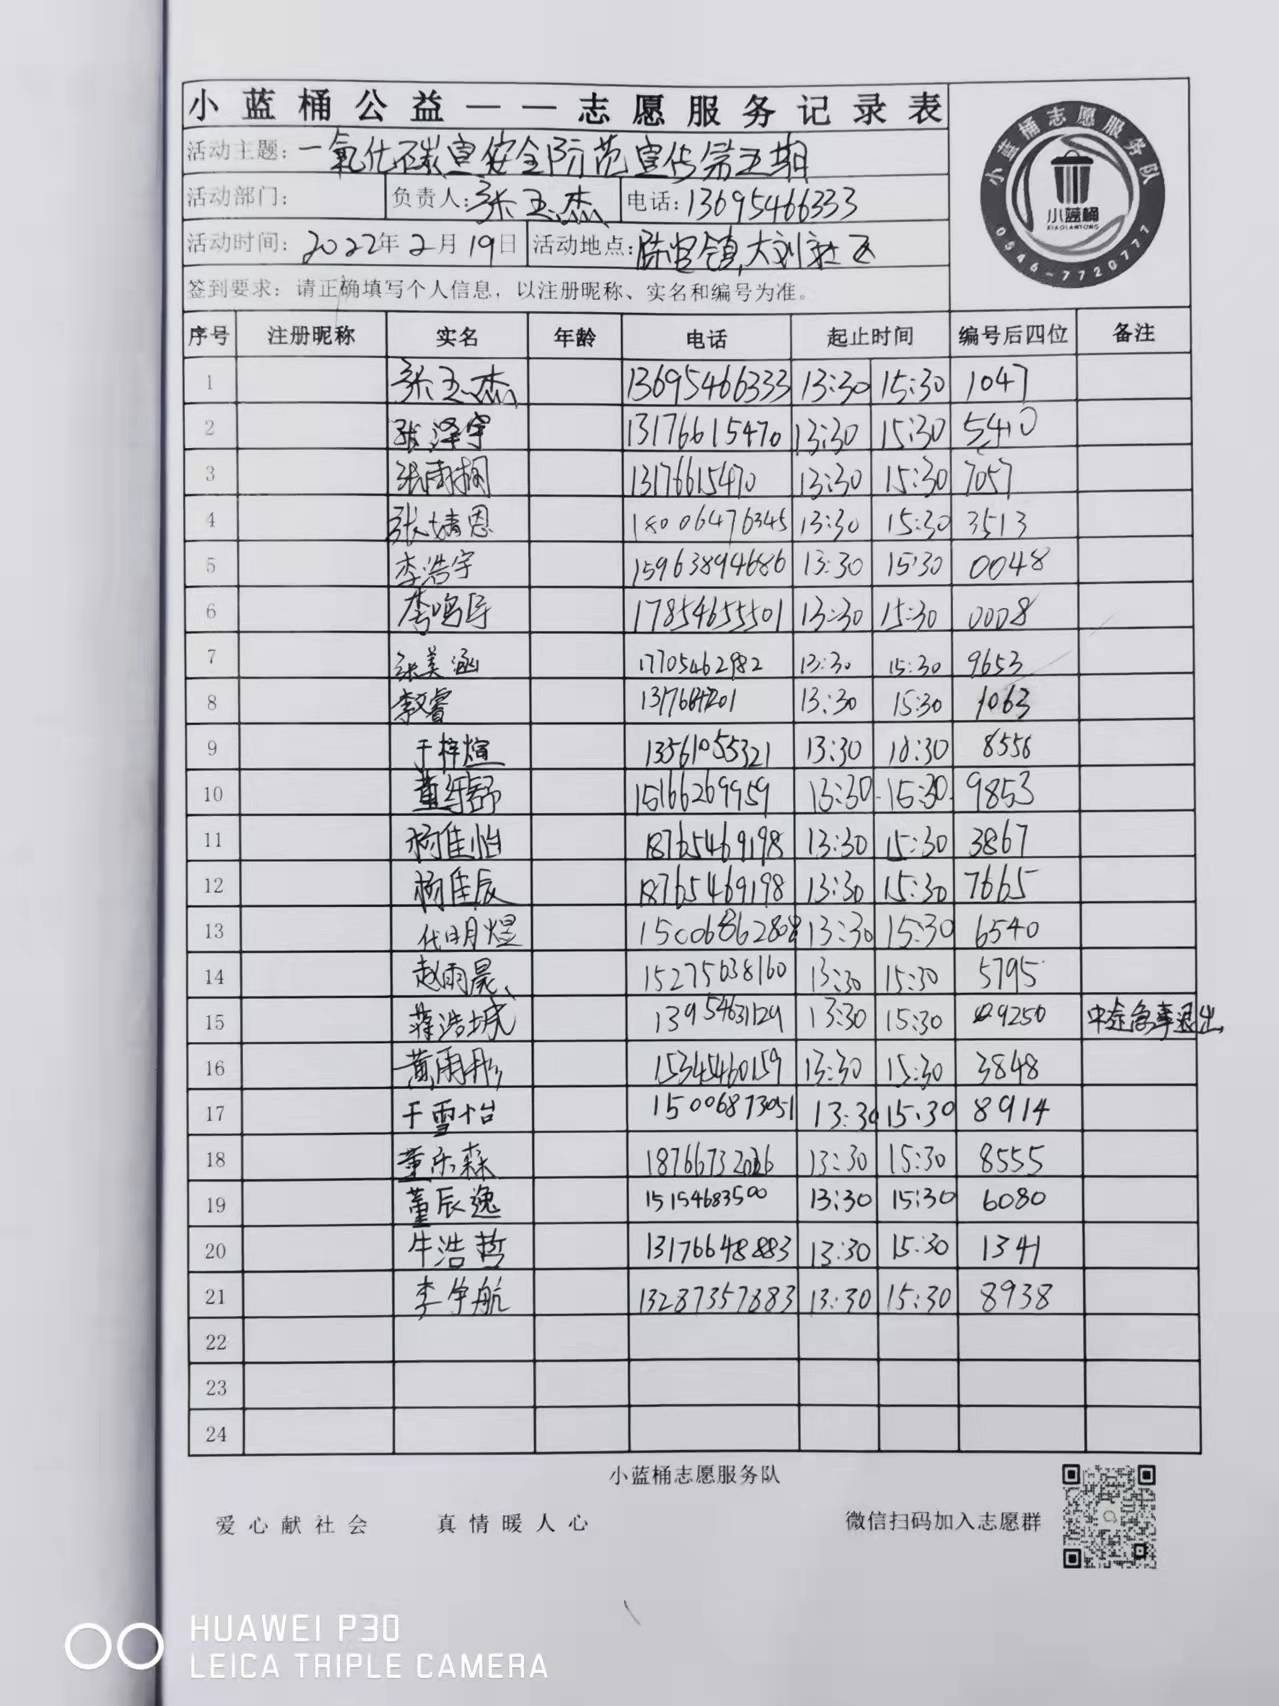 小蓝桶公益——志愿服务记录表
活动主题：一氧化碳宣安全防范宣传第五期
活动部门： 负责人：张玉杰 电话：13695466333
活动时间：2022年2月19日 活动地点：陈官镇,大刘社区
签到要求：请正确填写个人信息，以注册昵称、实名和编号为准。
小蓝桶志愿服务队
小蓝桶
XIAOLANTONG
0546-7720777
序号 注册昵称 实名 年龄 电话 起止时间 编号后四位 备注
1 张玉杰 13695466333 13:30 15:30 1047
2 张泽宇 13176615470 13:30 15:30 5410
3 张雨桐 13176615470 13:30 15:30 7057
4 张婧恩 18006476345 13:30 15:30 3513
5 李浩宇 15963894686 13:30 15:30 0048
6 李鸣宇 17854655501 13:30 15:30 0008
7 张美涵 17705462982 13:30 15:30 9653
8 李睿 13:30 15:30 1063
9 于梓煊 13561055321 13:30 10:30 8556
10 董 舒 15166269959 13:30 15:30 9853
11 杨佳怡 18765469198 13:30 15:30 3867
12 杨佳辰 18765469198 13:30 15:30 7665
13 代明煜 13:30 15:30 6540
14 赵雨晨 15275638160 13:30 15:30 5795
15 薛浩城 13954631124 13:30 15:30 9250 中途急事退出
16 黄雨彤 15345460159 13:30 15:30 3848
17 于雪怡 15006873051 13:30 15:30 8914
18 董乐森 13:30 15:30 8555
19 董辰逸 15154683500 13:30 15:30 6080
20 牛浩哲 13176648883 13:30 15:30 1341
21 李宇航 13287357883 13:30 15:30 8938
22
23
24
小蓝桶志愿服务队
爱心献社会 真情暖人心 微信扫码加入志愿群
HUAWEI P30
LEICA TRIPLE CAMERA